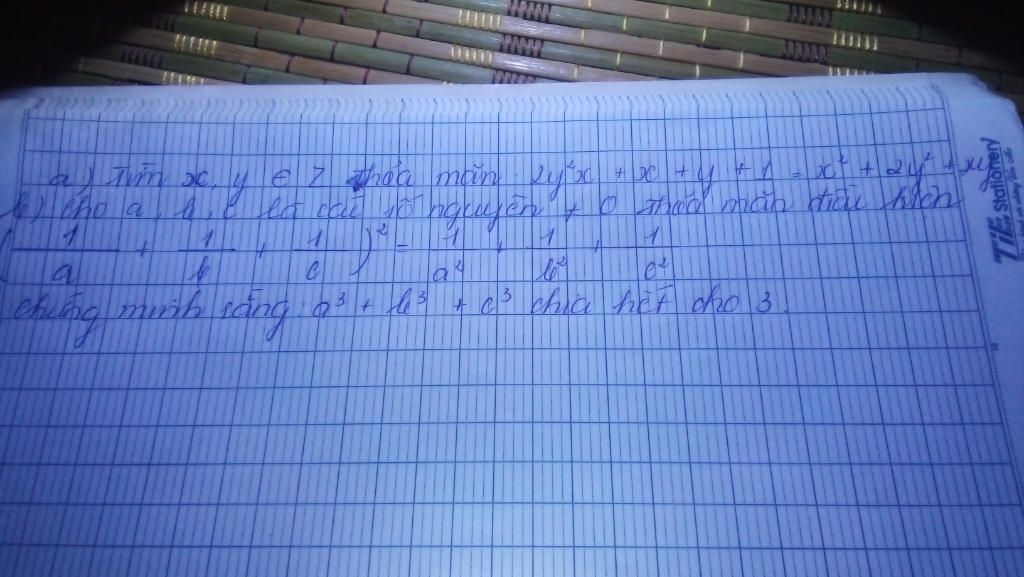 a) Tìm x, y ∈ Z thỏa mãn: 2y²x + x + y + 1 = x² + 2y² + xy
b) cho a, b, c là các số nguyên ≠ 0 thoả mãn điều kiện
(1/a + 1/b + 1/c)² = 1/a² + 1/b² + 1/c²
chứng minh rằng: a³ + b³ + c³ chia hết cho 3.
Stationery